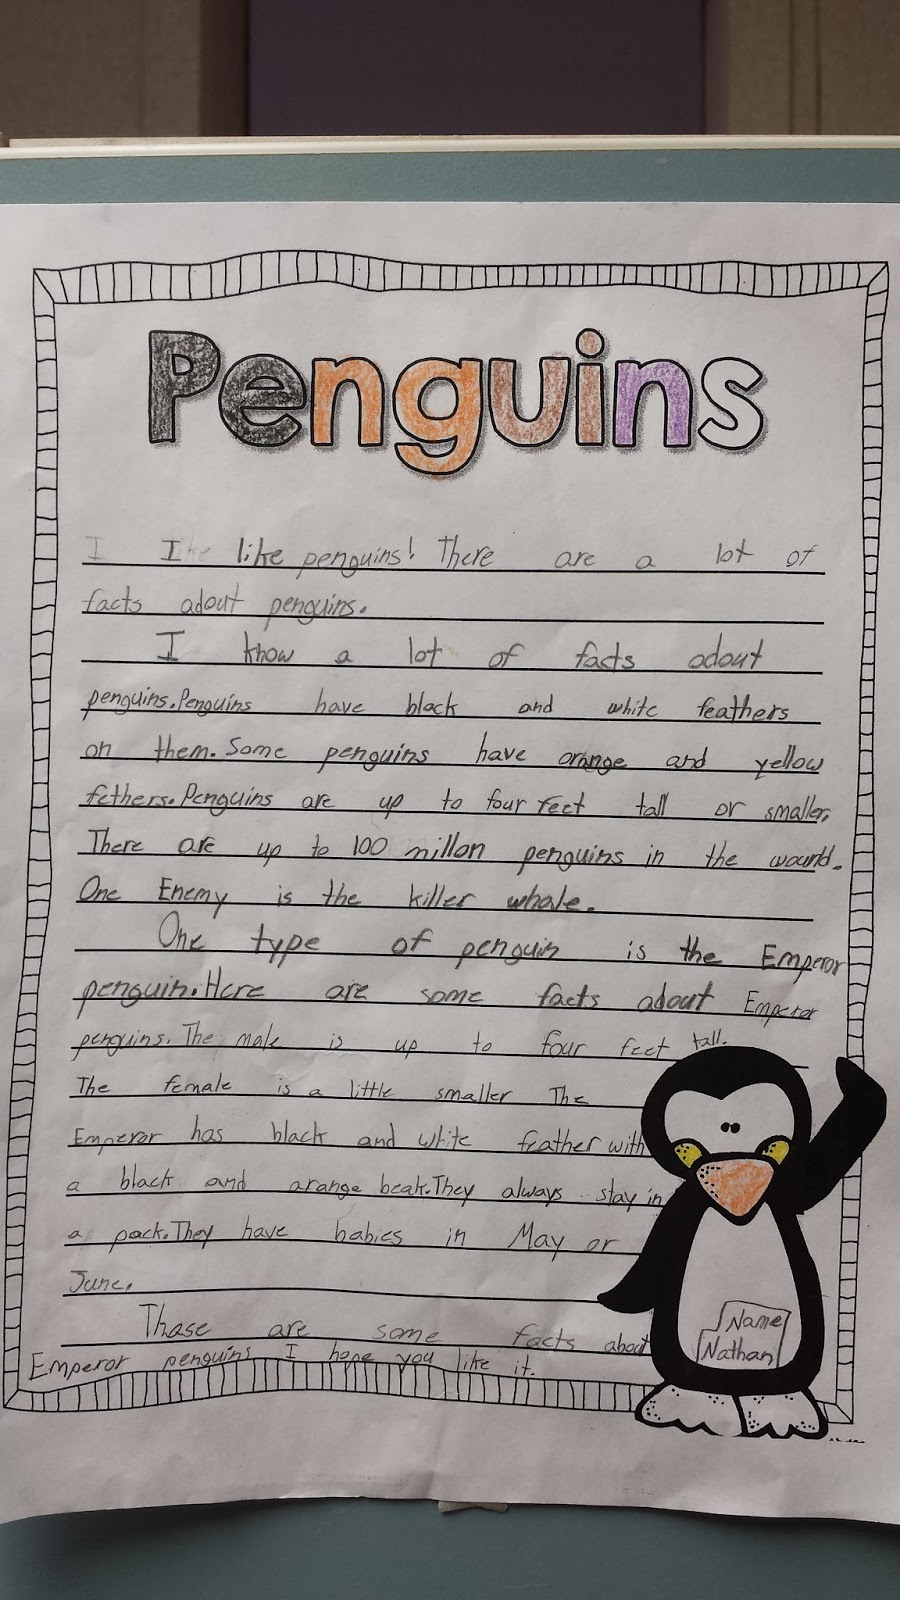 Penguins
I I like penguins! There are a lot of
facts adout penguins.
I know a lot of facts adout
penguins. Penguins have black and white feathers
on them. Some penguins have orange and yellow
fethers. Penguins are up to four feet tall or smaller.
There are up to 100 millon penguins in the would.
One Enemy is the killer whale.
One type of penguin is the Emperor
penguin. Here are some facts adout Emperor
penguins. The male is up to four feet tall.
The female is a little smaller The
Emperor has black and white feather with
a black and arange beak. They always stay in
a pack. They have babies in May or
June.
Thase are some facts about
Emperor penguins I hope you like it.
Name
Nathan